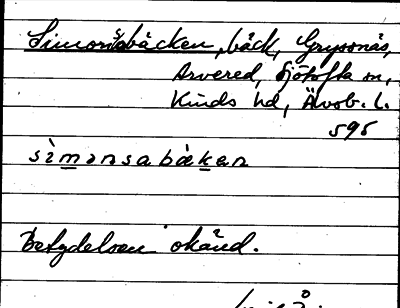 Simonsabäcken, bäck, Grysnäs,
Arvered, Sjötofta sn,
Kinds hd, Älvsb. l.
595
sìmənsabäkən
Betydelsen okänd.